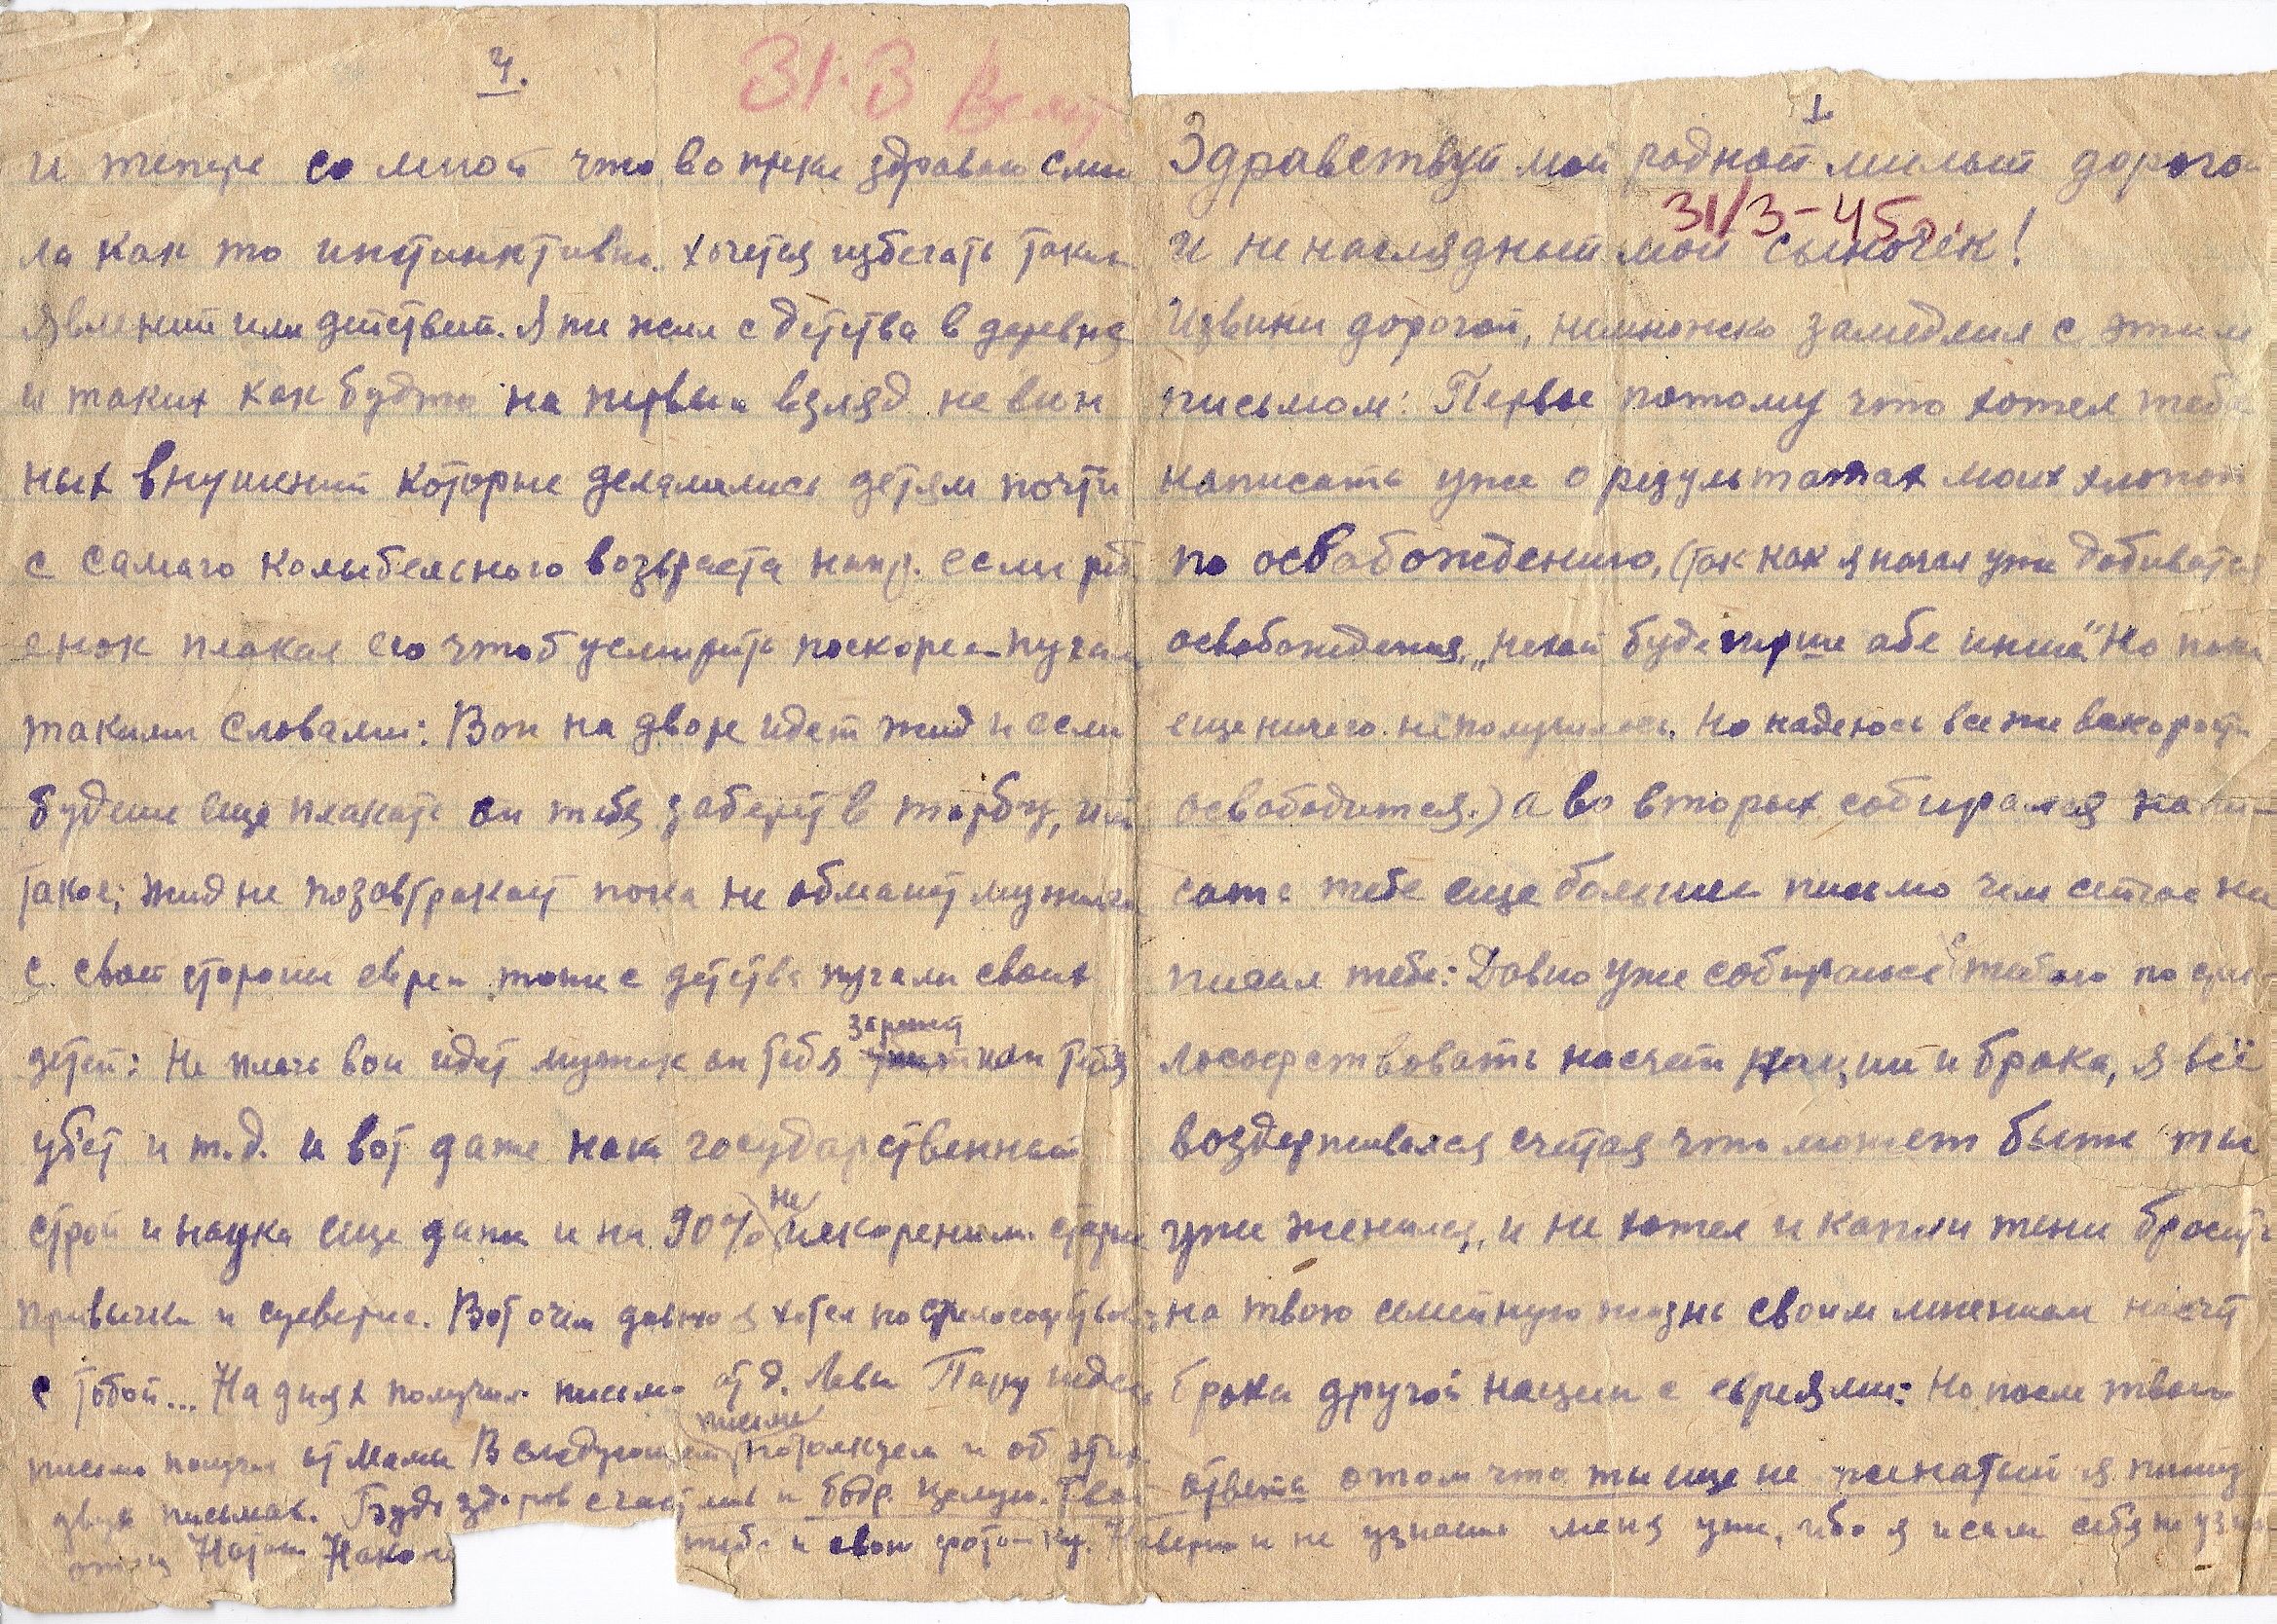 4.
31.3
и теперь со мной что вопреки здравой смы
ла как то инстинктивно хочется избегать таких
явлений или действий. Я же жил с детства в деревне
и таких как будто на первый взгляд невин
ных внушений которые делалились детям почти
с самаго колыбельного возраста напр. если реб
енок плакал его чтоб усмирить поскорее пугали
такими словами: Вон на дворе идет жид и если
будеш еще плакать он тебя заберет в торбу, или
такое; жид не позавтракает пока не обманет мужика
с своей стороны евреи тоже с детства пугали своих
детей: Не плачь вон идет мужик он тебя зарежет или тебя
убет и т.д. и вот даже наш государственный
строй и наука еще даже и на 90% не искоренили старые
привычки и суеверие. Вот о чем давно я хотел пофилософствовать
с тобой... На днях получил письмо от д. Левы Пару недель
письмо получил от Мамы В следующем письме потолкуем и об этих
двух письмах. Будь здоров счастлив и бодр. Целую. Твой
отец Натан
1.
Здравствуй мой родной милый дорогой
31/3-45г.
и ненаглядный мой сыночек!
Извини дорогой, немножко замедлил с этим
письмом: Первое потому что хотел тебе
написать уже о результатах моих хлопот
по освобождению, (так как я начал уже добиватся
освобождения, „нехай буде перше або инше" Но пока
еще ничего не получилось. Но надеюсь все же вскорости
освободится.) а во вторых собирался напи-
сать тебе еще больше письмо чем сейчас на
писал тебе: Давно уже собираюсь с тобою пофи
лософствовать насчет нации и брака, я всё
воздерживался считая что может быть ты
уже женился, и не хотел и капли тени бросить
на твою семейную жизнь своим мнением насчет
брака другой нации с евреями: Но после твоего
ответа о том что ты еще не женатый я пишу
тебе и свою фотокарт. Наверно и не узнаеш меня уже, ибо я и сам себя не узна